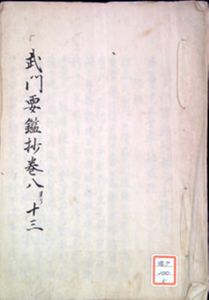 武門要鑑抄巻八ヨリ十三